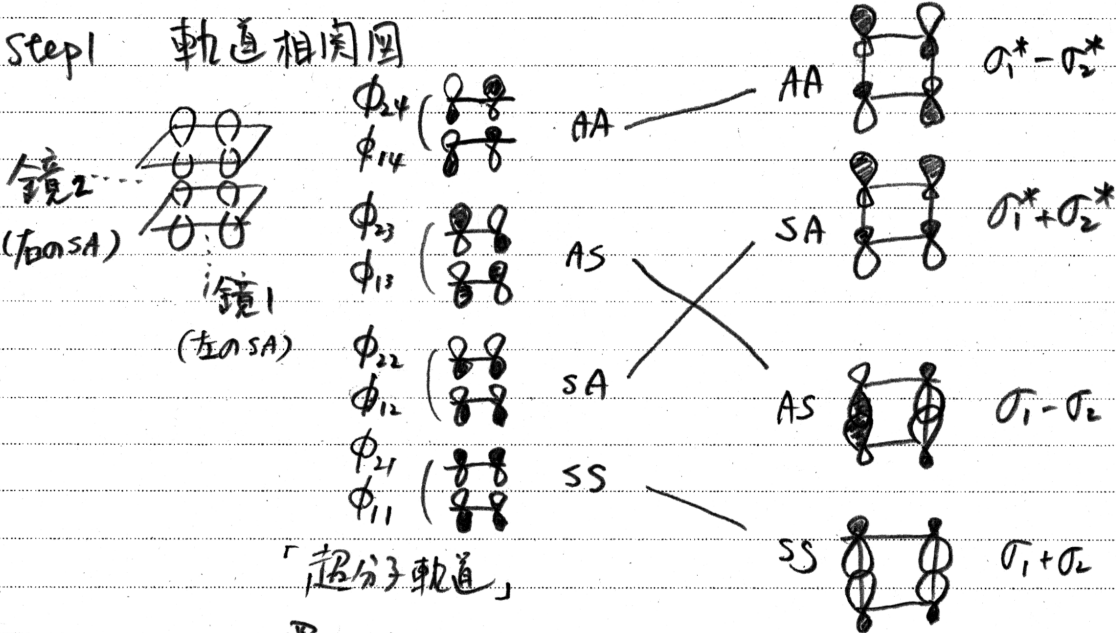 step1 軌道相関図
鏡2
(右のSA)
鏡1
(左のSA)
φ24
φ14
AA
φ23
φ13
AS
φ22
φ12
SA
φ21
φ11
SS
「超分子軌道」
AA σ1*-σ2*
SA σ1*+σ2*
AS σ1-σ2
SS σ1+σ2